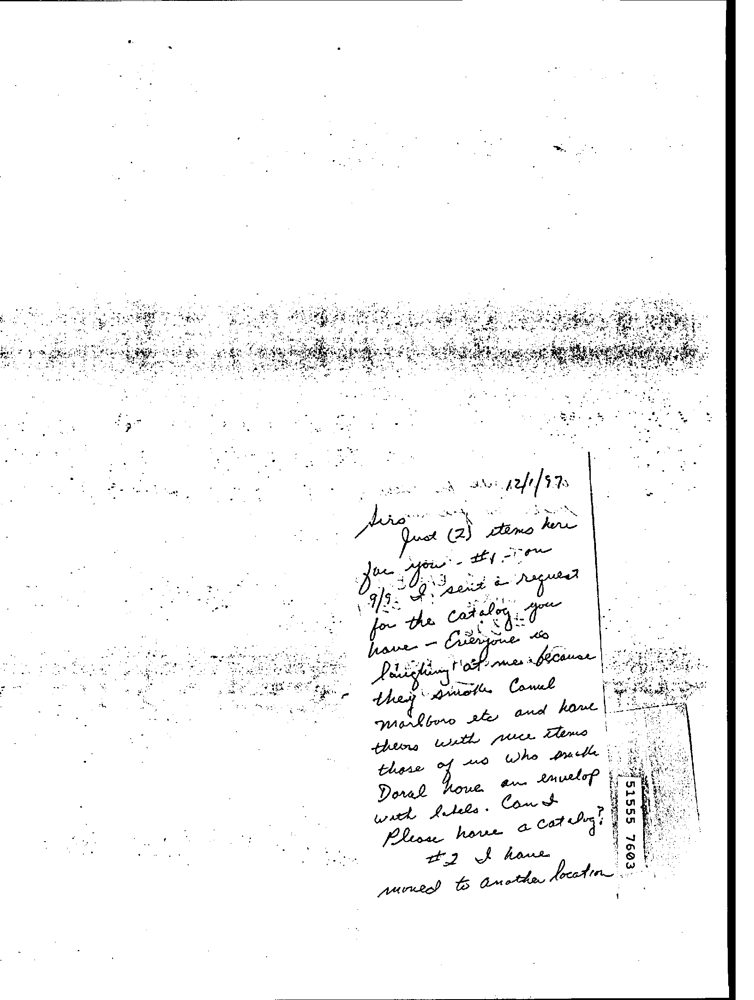 12/1/97
Sirs
Just (2) items here
for you - #1 - on
9/9 I sent a request
for the catalog you
have - Everyone is
laughing at me because
they smoke Camel
Marlboro etc and have
theirs with nice items
those of us who smoke
Doral have an envelop
with labels. Can I
Please have a catalog?
#2 I have
moved to another location
51555 7603